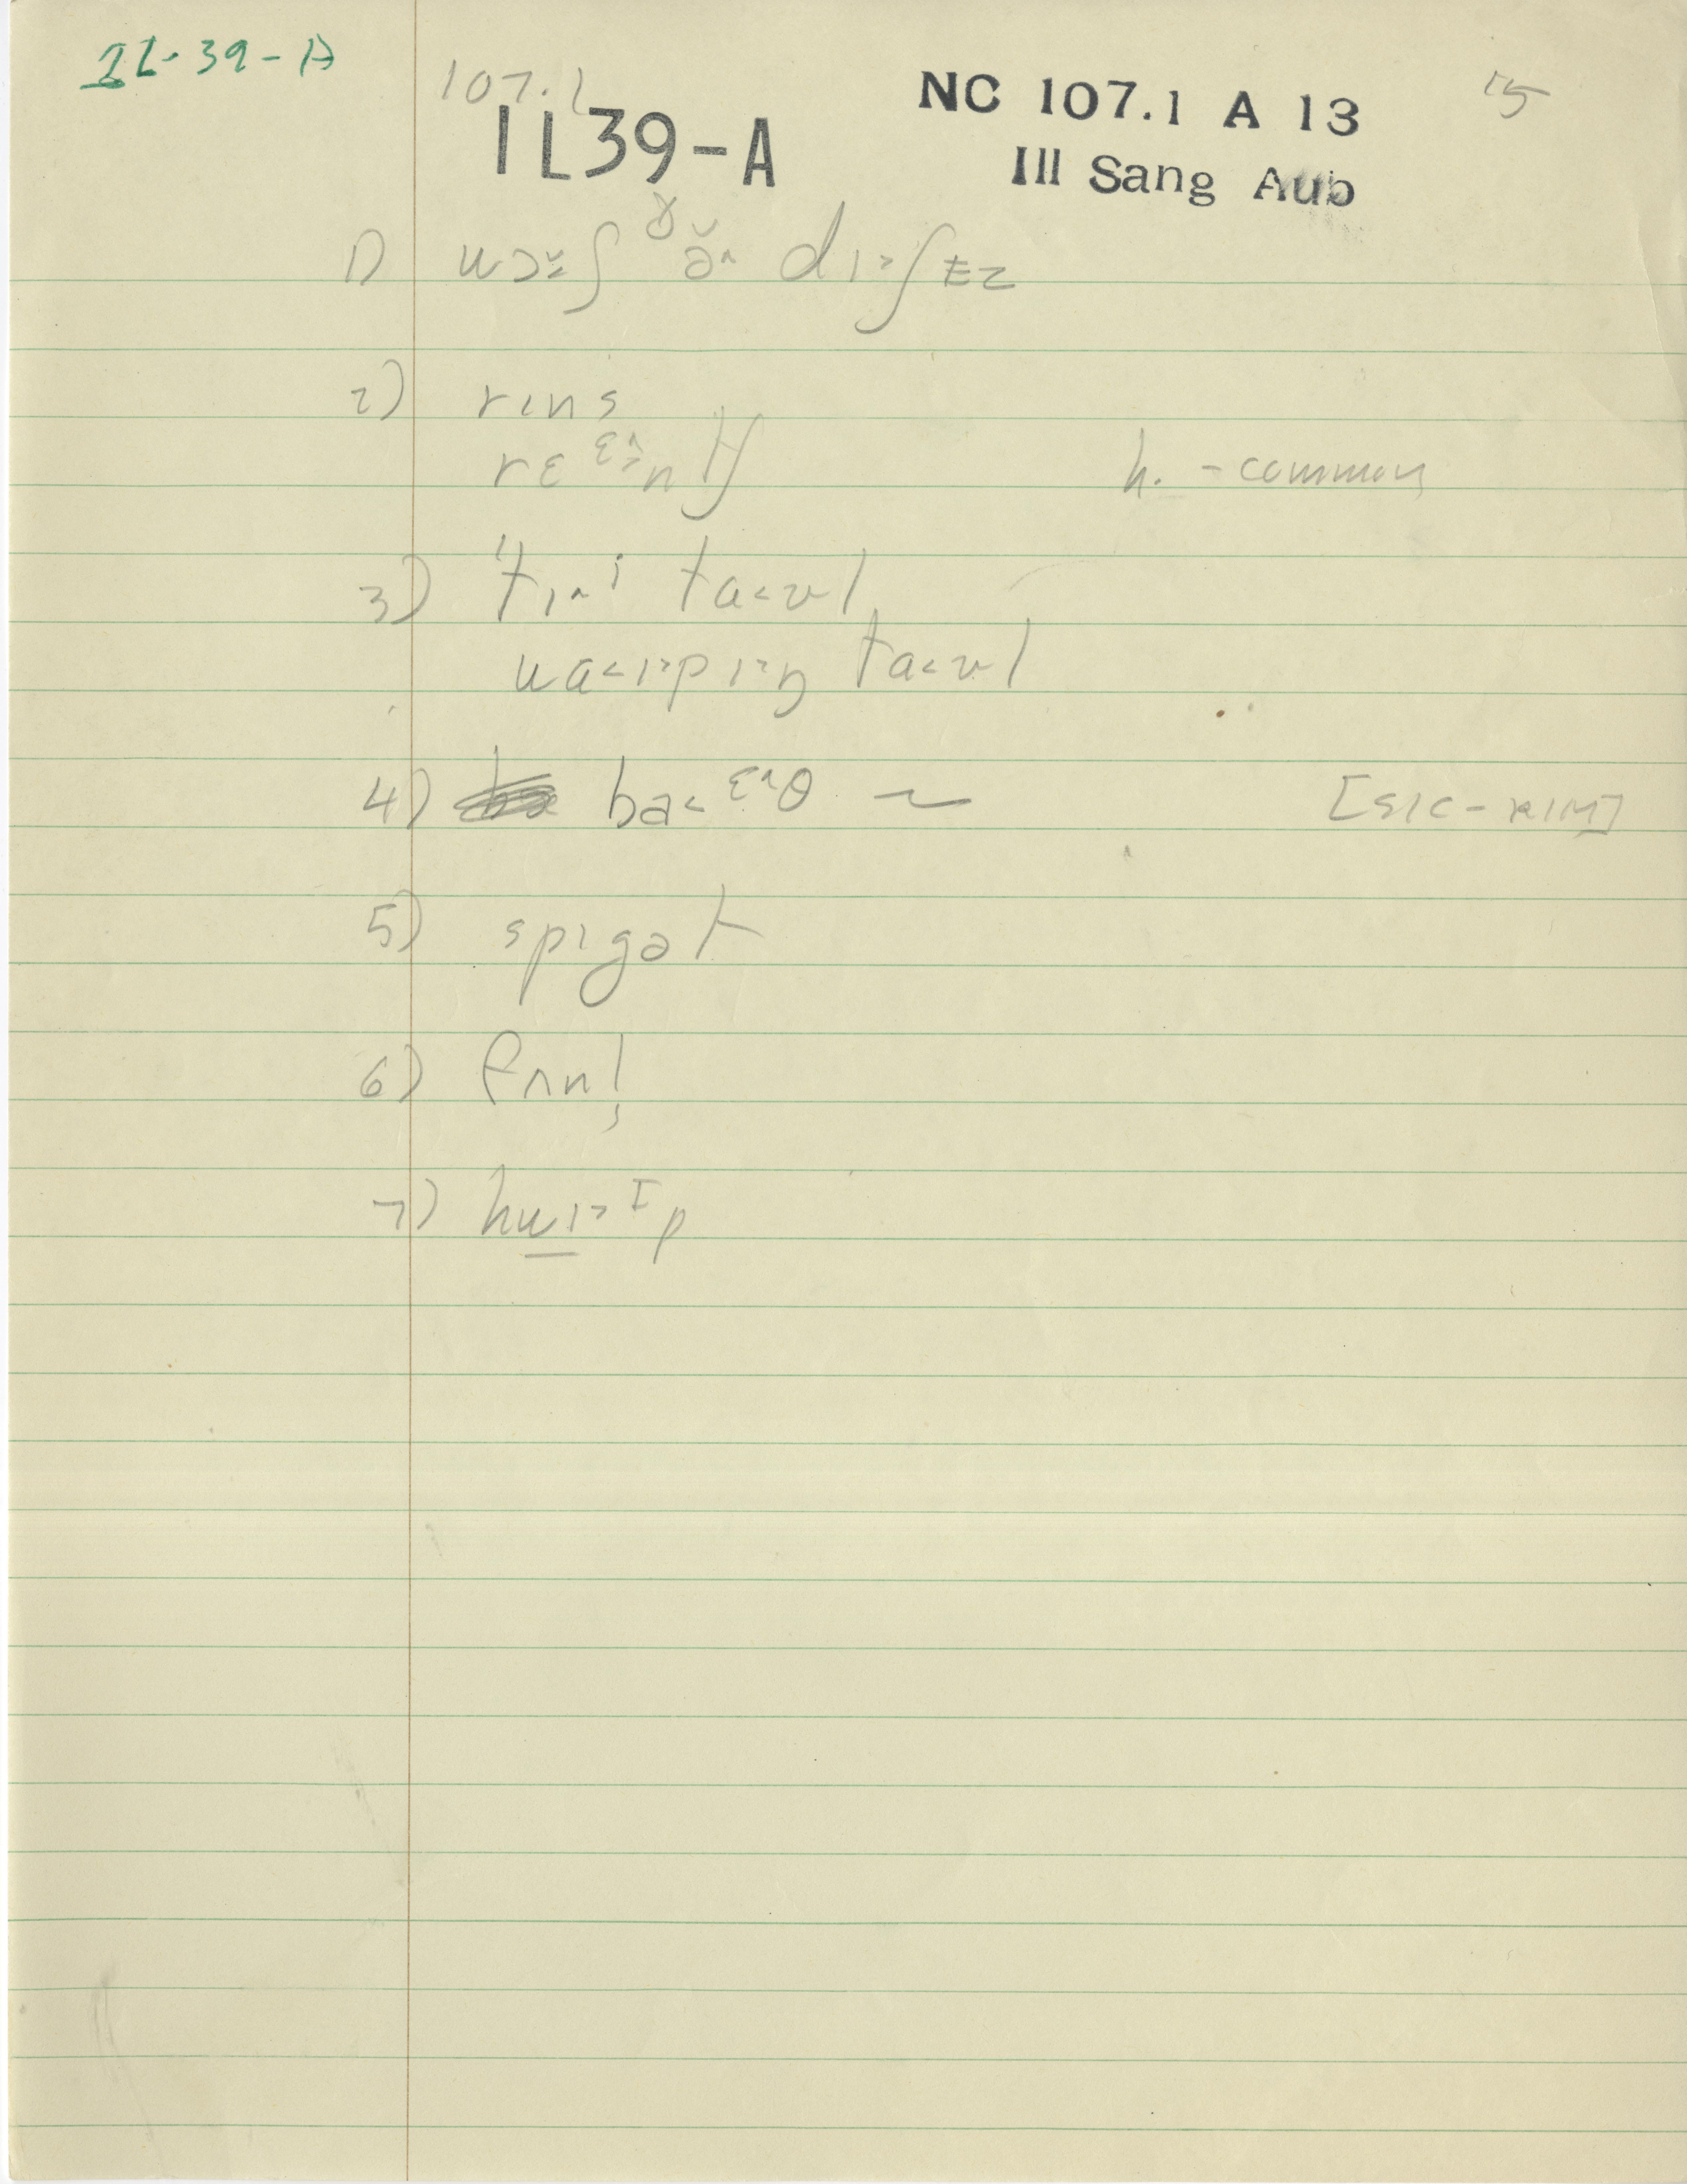 IL-39-A
107.1
IL39-A
NC 107.1 A 13
Ill Sang Aub
15
1) wɔ˞ʃ ðə̆^ dɪ>ʃɪz
2) rɪns
rɛ ᵋ^>n tʃ h. - common
3) tɪ^i ta<ʊl
wa<ɪ>pɪ>ŋ ta<ʊl
4) ba< ᵋ^θ ~ [SIC-RIM]
5) spɪgət
6) fʌnl̩
7) hwɪ>ᴵp